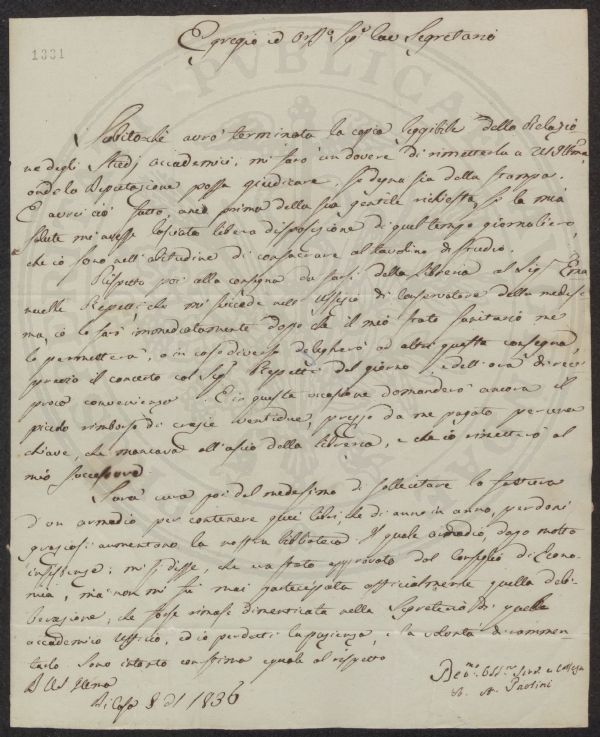 1331
Egregio ed Oss.o Sig.r Cav Segretario
Subitochè avrò terminata la copia leggibile della Relazio
ne degli Studj accademici, mi farò un dovere di rimetterla a
onde la Deputazione possa giudicare, se degna sia della stampa.
E avrei ciò fatto, anco prima della sua gentile richiesta, se la mia
salute mi avesse lasciato libera disposizione di quel tempo giornaliero,
che io sono nell'abitudine di consacrare al tavolino di studio.
Rispetto poi alla consegna da farsi della Libreria al Sig.r Ema
nuelle Repetti, che mi succede nell'Uffizio di Conservatore della medesi
ma, io lo farò immediatamente dopo che il mio stato sanitario me
lo permetterà, o in caso diverso delegherò ad altri questa consegna,
previo il concerto col Sig.r Reppetti del giorno, e dell'ora di reci
proca convenienza. E in questa occasione domanderò ancora il
piccolo rimborso di crazie ventidue, prezzo da me pagato per una
chiave, che mancava all'uscio della libreria, e che io rimetterò al
mio successore.
Sarà cura poi del medesimo di sollecitare la fattura
d'un armadio per contenere quei libri che di anno in anno, per doni
graziosi aumentano la nostra biblioteca. Il quale armadio, dopo molte
insistenze, mi si disse, che era stato approvato dal Consiglio di Econo
mia, ma non mi fu mai partecipata officialmente quella deli
berazione, che forse rimase dimenticata nella Segreteria di quello
accademico Uffizio, ed io perdetti la pazienza, e la volontà di rammen
tarlo. Sono intanto con stima eguale al rispetto
Di Casa 8 1836
Dev.mo Obb.mo Serv. e Collega
Paolini